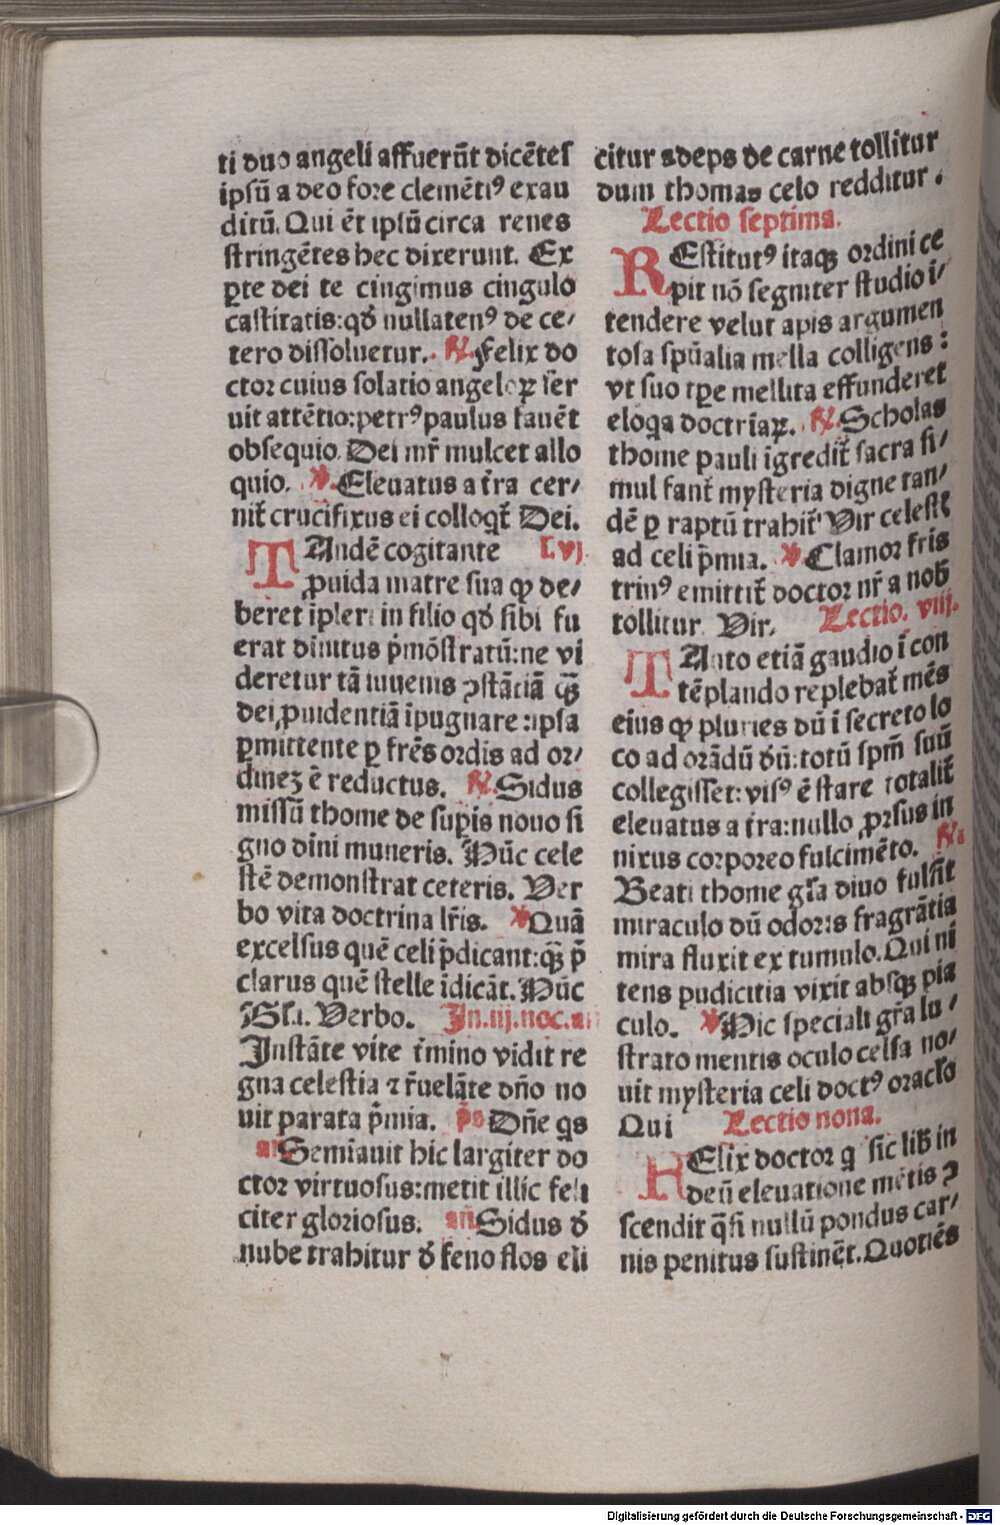 ti duo angeli affuerūt dicētes
ipsū a deo fore clemētiꝰ exau
ditū. Qui ēt ipsū circa renes
stringētes hec dixerunt. Ex
ꝑte dei te cingimus cingulo
castitatis: qđ nullatenꝰ de ce/
tero dissoluetur. ℟. Felix do
ctor cuius solatio angeloꝝ ser
uit attētio: petrꝰ paulus fauēt
obsequio. Dei mr̄ mulcet allo
quio. ℣. Eleuatus a t̄ra cer/
nit̄ crucifixus ei colloqt̄ Dei.
TAndē cogitante L. vj
ꝓuida matre sua ꝙ de/
beret īpleri in filio qđ sibi fu
erat diuītus p̄mōstratū: ne vi
deretur tā iuuenis ꝯstātiā qꝫ
dei ꝓuidentiā īpugnare: ipsa
ꝑmittente ꝑ fr̄es ordīs ad or/
dineꝫ ē reductus. ℟. Sidus
missū thome de suꝑis nouo si
gno diuī muneris. Nūc cele
stē demonstrat ceteris. Ver
bo vita doctrina lr̄is. ℣ Quā
excelsus quē celi p̄dicant: qꝫ p̄
clarus quē stelle īdicāt. Nūc
Gl̄ia. Verbo. In. iij. noc. añ
Instāte vite t̄mino vidit re
gna celestia ⁊ r̄uelāte dño no
uit parata p̄mia. p̄s Dñe qs
añ Semīauit hic largiter do
ctor virtuosus: metit illic feli
citer gloriosus. añ Sidus đ
nube trahitur đ feno flos eli
citur adeps de carne tollitur
dum thomas celo redditur.
Lectio septima.
REstitutꝰ itaqꝫ ordini ce
pit nō segniter studio ī/
tendere velut apis argumen
tosa spūalia mella colligens:
vt suo tꝑe mellita effunderet
eloqa doctriāꝝ. ℟. Scholas
thome pauli īgredit̄ sacra si/
mul fant̄ mysteria digne tan/
dē ꝑ raptū trahit̄ Vir celestꝭ
ad celi p̄mia. ℣ Clamor fris
trinꝰ emittit̄ doctor nr̄ a nob̄
tollitur Vir. Lectio. viij.
TAnto etiā gaudio ī con
tēplando replebat̄ mēs
eius ꝙ pluries dū ī secreto lo
co ad orādū dū: totū spm̄ suū
collegisset: visꝰ ē stare totalit̄
eleuatus a t̄ra: nullo ꝓrsus in
nixus corporeo fulcimēto. ℟.
Beati thome gr̄a diuo fulsit
miraculo dū odoris fragrātia
mira fluxit ex tumulo. Qui ni
tens pudicitia vixit absqꝫ pia
culo. ℣ Hic speciali gr̄a lu/
strato mentis oculo celsa no/
uit mysteria celi doctꝰ oraclo
Qui Lectio nona.
FElix doctor q̄ sic lib̄ in
deū eleuatione mētis ꝯ
scendit q̄si nullū pondus car/
nis penitus sustinēt. Quotiēs
Digitalisierung gefördert durch die Deutsche Forschungsgemeinschaft - DFG